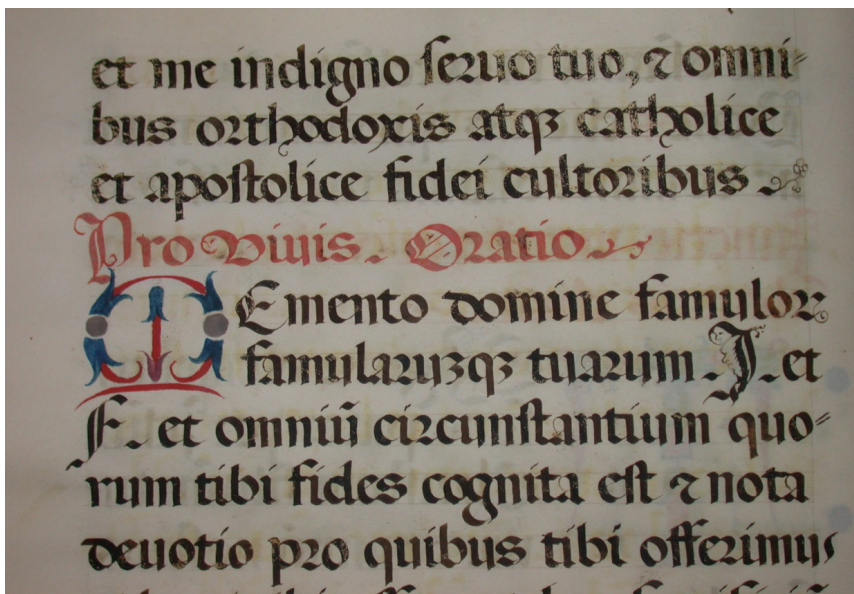 et me indigno seruo tuo, ⁊ omni-
bus orthodoxis atqꝫ catholice
et apostolice fidei cultoribus
Pro Viuis. Oratio
MEmento domine famuloꝝ
famularuꝫqꝫ tuarum .J. et
F. et omniū circunstantium quo-
rum tibi fides cognita est ⁊ nota
deuotio pro quibus tibi offerimus